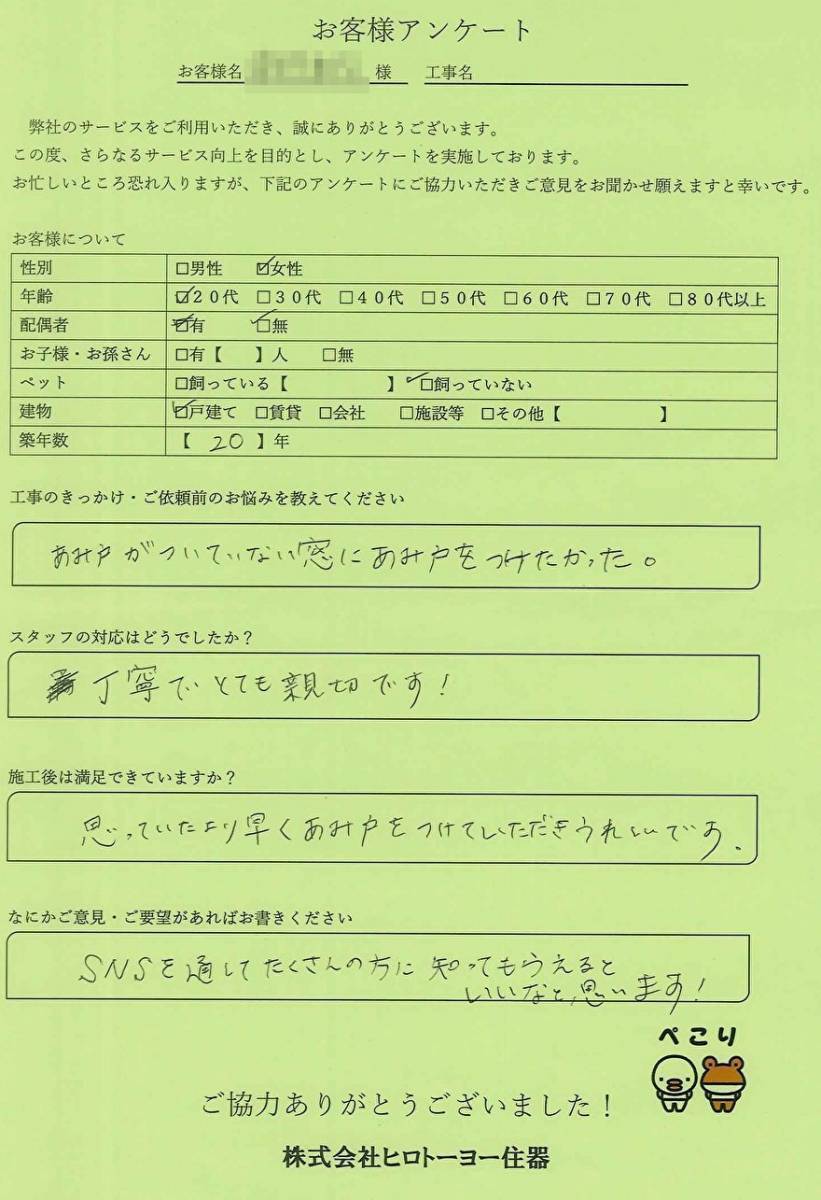 お客様アンケート
お客様名 様 工事名
弊社のサービスをご利用いただき、誠にありがとうございます。
この度、さらなるサービス向上を目的とし、アンケートを実施しております。
お忙しいところ恐れ入りますが、下記のアンケートにご協力いただきご意見をお聞かせ願えますと幸いです。
お客様について
性別 □男性 ☑女性
年齢 ☑20代 □30代 □40代 □50代 □60代 □70代 □80代以上
配偶者 □有 ☑無
お子様・お孫さん □有【 】人 □無
ペット □飼っている【 】 ☑飼っていない
建物 ☑戸建て □賃貸 □会社 □施設等 □その他【 】
築年数 【 20 】年
工事のきっかけ・ご依頼前のお悩みを教えてください
あみ戸がついていない窓にあみ戸をつけたかった。
スタッフの対応はどうでしたか？
丁寧でとても親切です！
施工後は満足できていますか？
思っていたより早くあみ戸をつけていただきうれしいです.
なにかご意見・ご要望があればお書きください
SNSを通してたくさんの方に知ってもらえると
いいなと思います！
ぺこり
ご協力ありがとうございました！
株式会社ヒロトーヨー住器